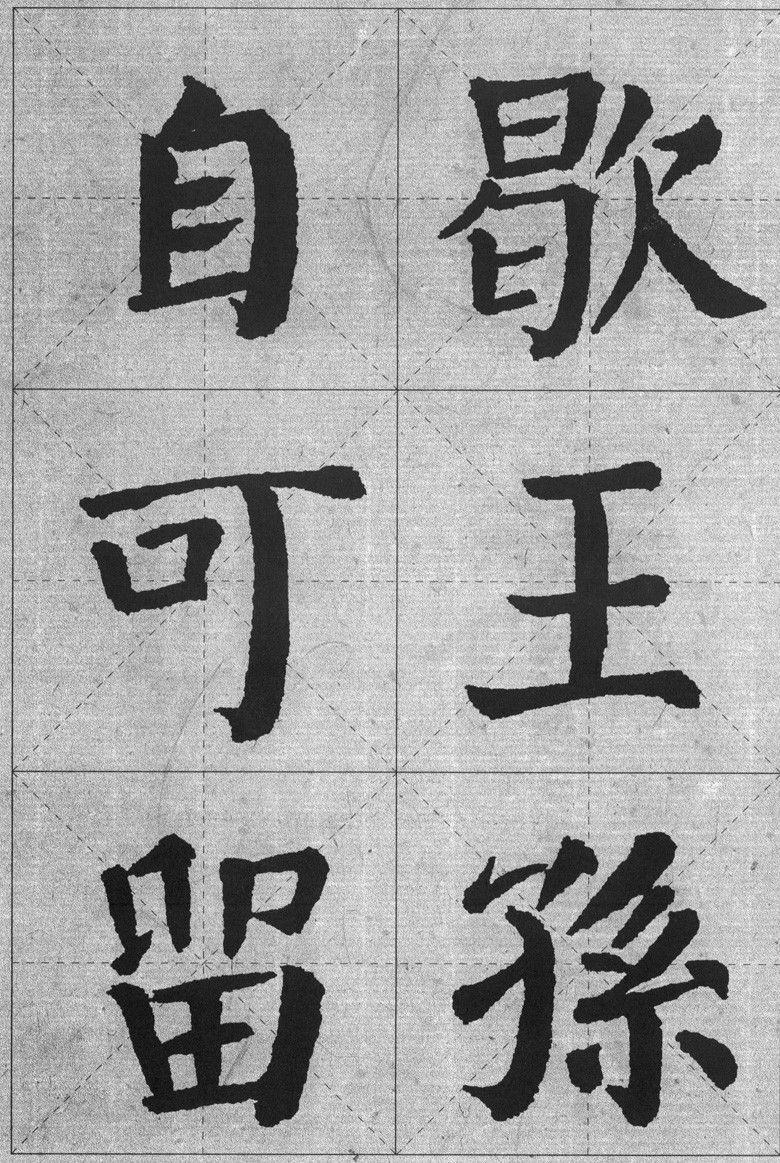 歇王孫
自可留